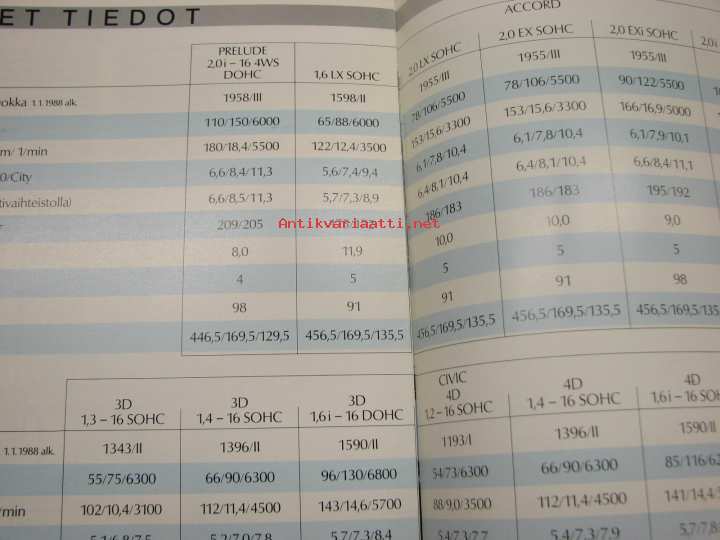 ET TIEDOT
ACCORD
PRELUDE
2,0i – 16 4WS
DOHC
1,6 LX SOHC
2,0 LX SOHC
2,0 EX SOHC
2,0 EXi SOHC
2,0i
okka 1.1.1988 alk.
1958/III
1598/II
1955/III
1955/III
1955/III
110/150/6000
65/88/6000
78/106/5500
78/106/5500
90/122/5500
m/ 1/min
180/18,4/5500
122/12,4/3500
153/15,6/3300
153/15,6/3300
166/16,9/5000
0/City
6,6/8,4/11,3
5,6/7,4/9,4
6,1/7,8/10,4
6,1/7,8/10,4
6,1/7,9/10,1
tivaihteistolla)
6,6/8,5/11,3
5,7/7,3/8,9
6,4/8,1/10,4
6,4/8,1/10,4
6,6/8,4/11,1
209/205
186/183
186/183
195/192
Antikvariaatti.net
8,0
11,9
10,0
10,0
9,0
4
5
5
5
5
98
91
91
91
98
446,5/169,5/129,5
456,5/169,5/135,5
456,5/169,5/135,5
456,5/169,5/135,5
456,5/169,5/135,5
3D
1,3 – 16 SOHC
3D
1,4 – 16 SOHC
3D
1,6i – 16 DOHC
CIVIC
4D
1,2 – 16 SOHC
4D
1,4 – 16 SOHC
4D
1,6i – 16 SOH
1.1.1988 alk.
1343/II
1396/II
1590/II
1193/I
1396/II
1590/II
55/75/6300
66/90/6300
96/130/6800
54/73/6300
66/90/6300
85/116/6
/min
102/10,4/3100
112/11,4/4500
143/14,6/5700
88/9,0/3500
112/11,4/4500
141/14,4/
5,1/6,8/7,5
5,2/7,0/7,8
5,7/7,3/8,4
5,4/7,3/7,7
5,4/7,3/7,9
5,7/7,8